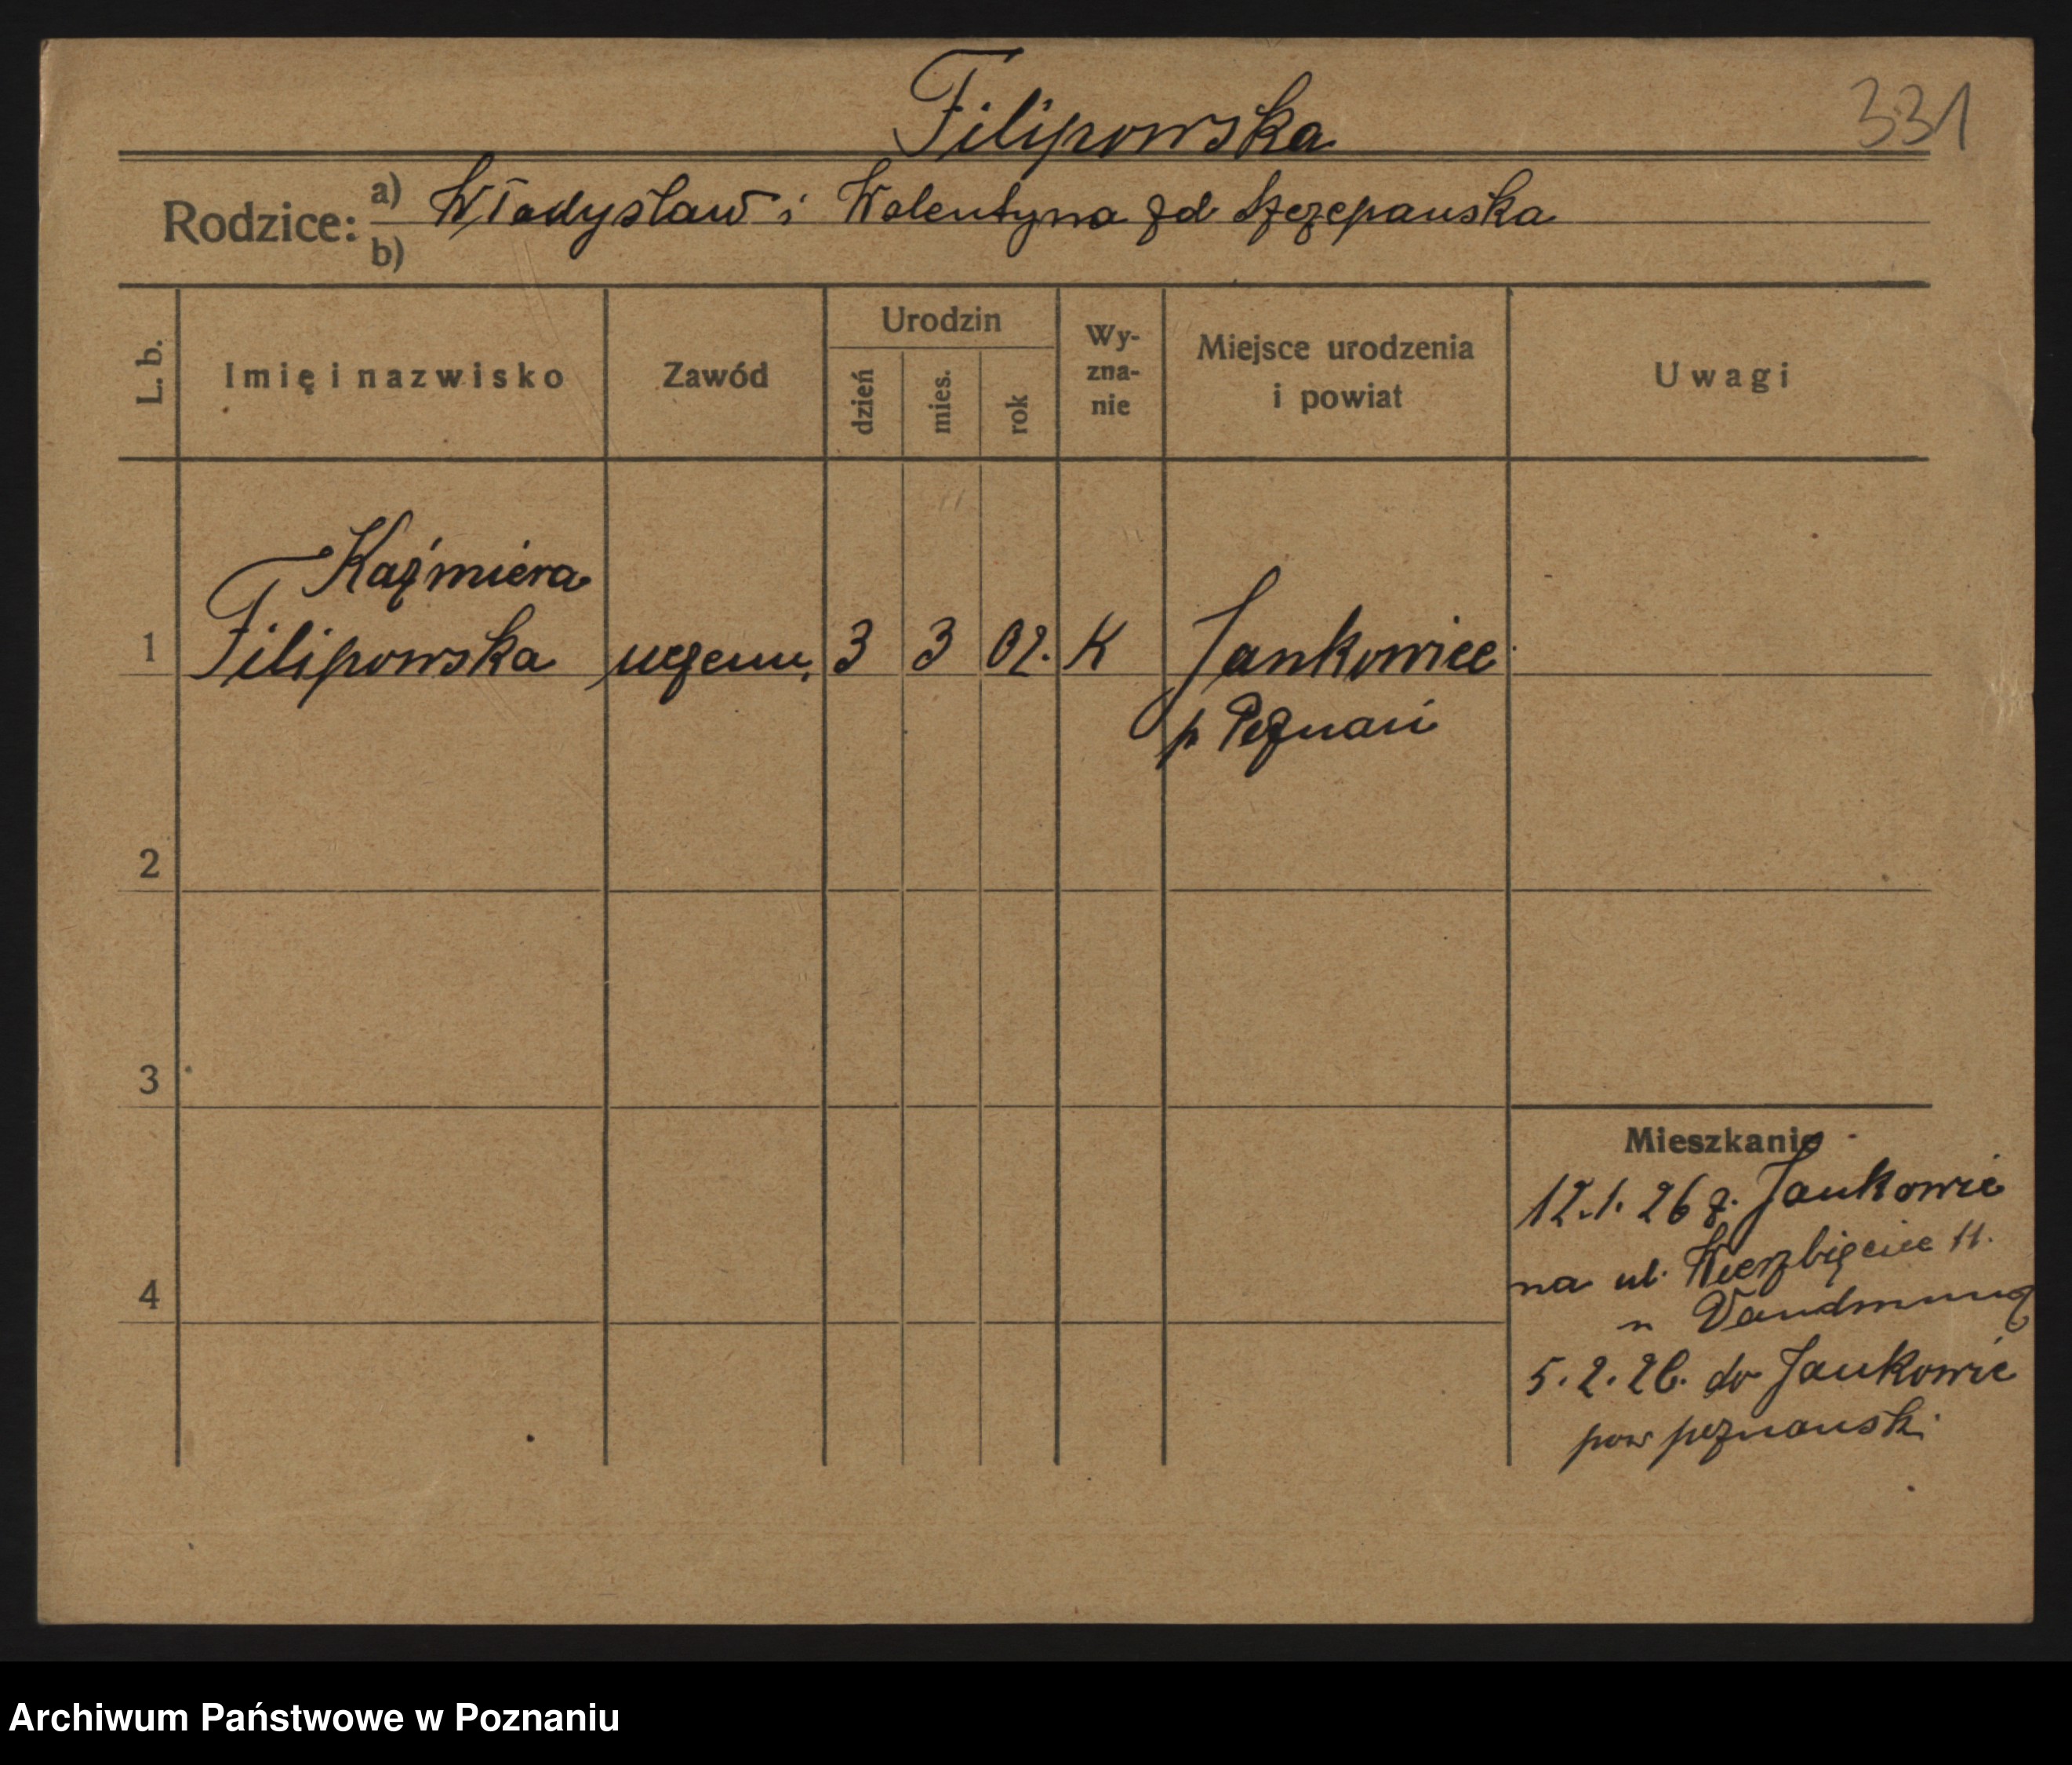 Filipowska
331
Rodzice: a) Władysław i Walentyna zd Szczepańska
b)
L. b.
Imię i nazwisko
Zawód
Urodzin
dzień
mies.
rok
Wy-
zna-
nie
Miejsce urodzenia
i powiat
Uwagi
Kaźmiera
1 Filipowska uczenn. 3 3 02. K Jankowice
p Poznań
2
3
4
Mieszkanie
12.1.26 z. Jankowic
na ul. Wierzbięcice 11.
5.2.26. do Jankowic
pow poznański
Archiwum Państwowe w Poznaniu